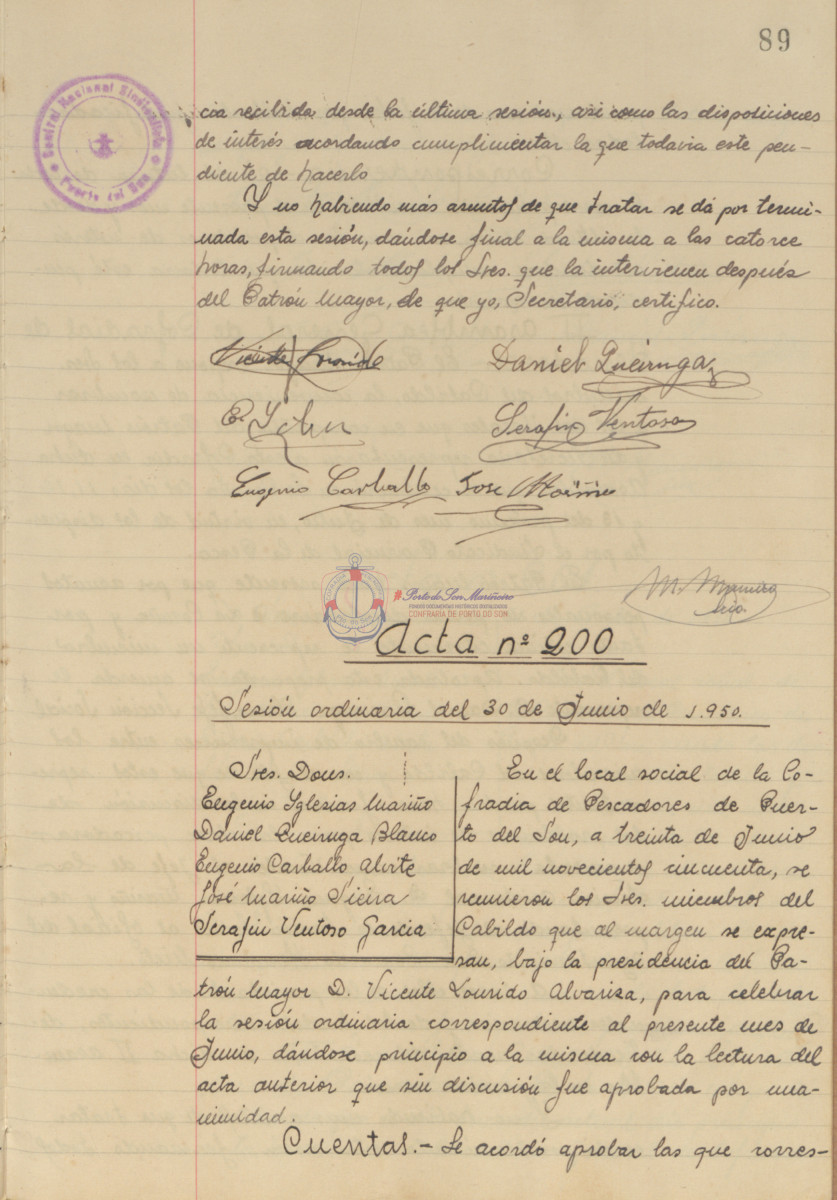 89
Central Nacional Sindicalista
Puerto del Son
cia recibida desde la última sesión, así como las disposiciones
de interés acordando cumplimentar la que todavia este pen-
diente de hacerlo
Y no habiendo más asuntos de que tratar se dá por termi-
nada esta sesión, dándose final a la misma a las catorce
horas, firmando todos los Sres. que la intervienen después
del Patrón Mayor, de que yo, Secretario, certifico.
Vicente Lourido
Daniel Queiruga
E. Igles
Serafin Ventoso
Eugenio Carballo
Jose Mariño
#Porto do Son Mariñeiro
FONDOS DOCUMENTAIS HISTÓRICOS DIXITALIZADOS
CONFRARÍA DE PORTO DO SON
Srio.
Acta nº 200
Sesión ordinaria del 30 de Junio de 1.950.
Sres. Dons.
Eugenio Yglesias Mariño
Daniel Queiruga Blanco
Eugenio Carballo Alvite
José Mariño Sieira
Serafin Ventoso Garcia
En el local social de la Co-
fradia de Pescadores de Puer-
to del Son, a treinta de Junio
de mil novecientos cincuenta, se
reunieron los Sres. miembros del
Cabildo que al margen se expre-
san, bajo la presidencia del Pa-
trón Mayor D. Vicente Lourido Alvariza, para celebrar
la sesión ordinaria correspondiente al presente mes de
Junio, dándose principio a la misma con la lectura del
acta anterior que sin discusión fue aprobada por una-
nimidad.
Cuentas.- Se acordó aprobar las que corres-